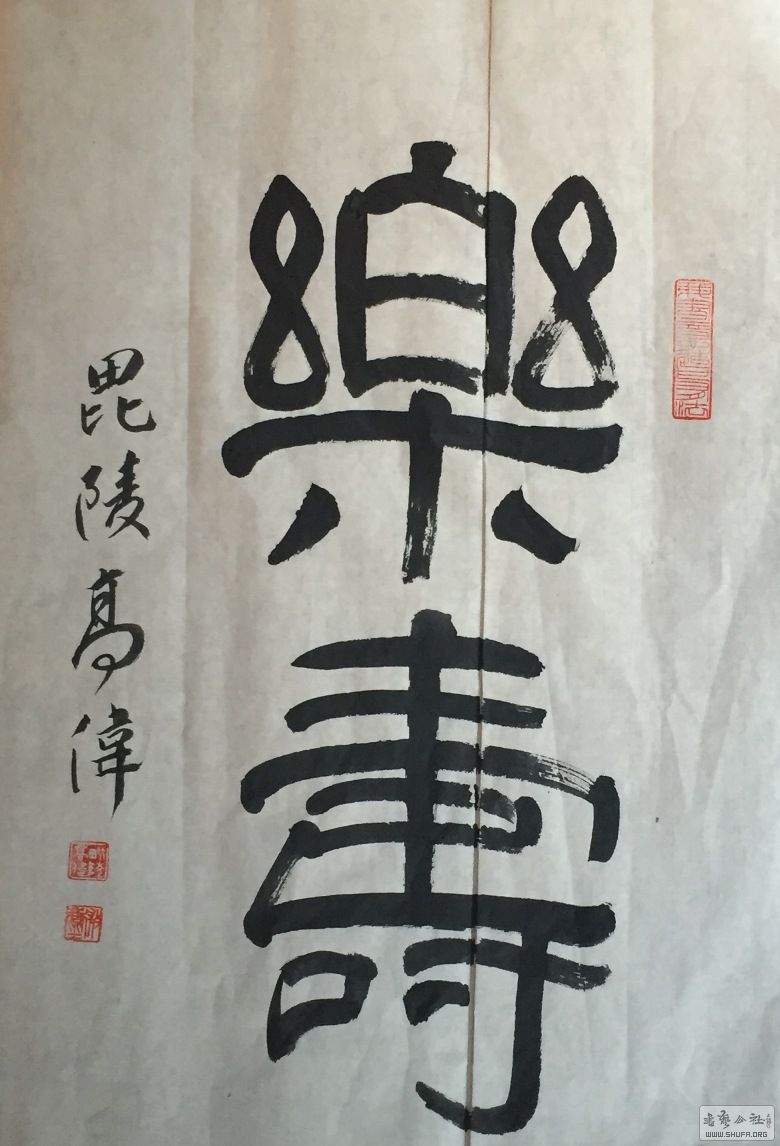 樂壽
毘陵高偉
書藝公社
WWW.SHUFA.ORG